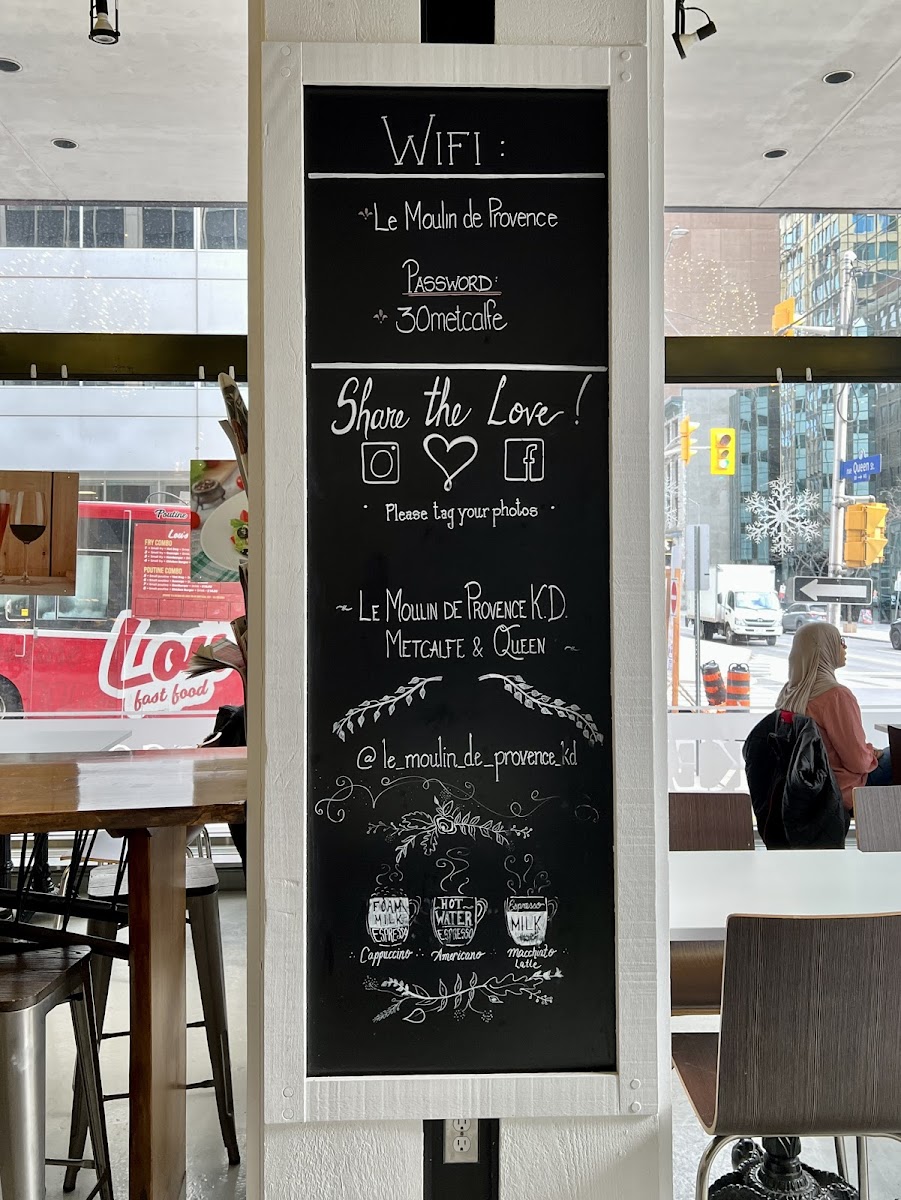 WIFI :
Le Moulin de Provence
PASSWORD:
30metcalfe
Share the Love !
f
Please tag your photos
~ LE MOULIN DE PROVENCE K.D.
METCALFE & QUEEN ~
@le_moulin_de_provence_kd
FOAM
MILK
ESPRESSO
Cappuccino
HOT
WATER
ESPRESSO
Americano
Espresso
MILK
Macchiato
Latte
Poutine
Lou's
FRY COMBO
POUTINE COMBO
Lou
fast food
Queen St.